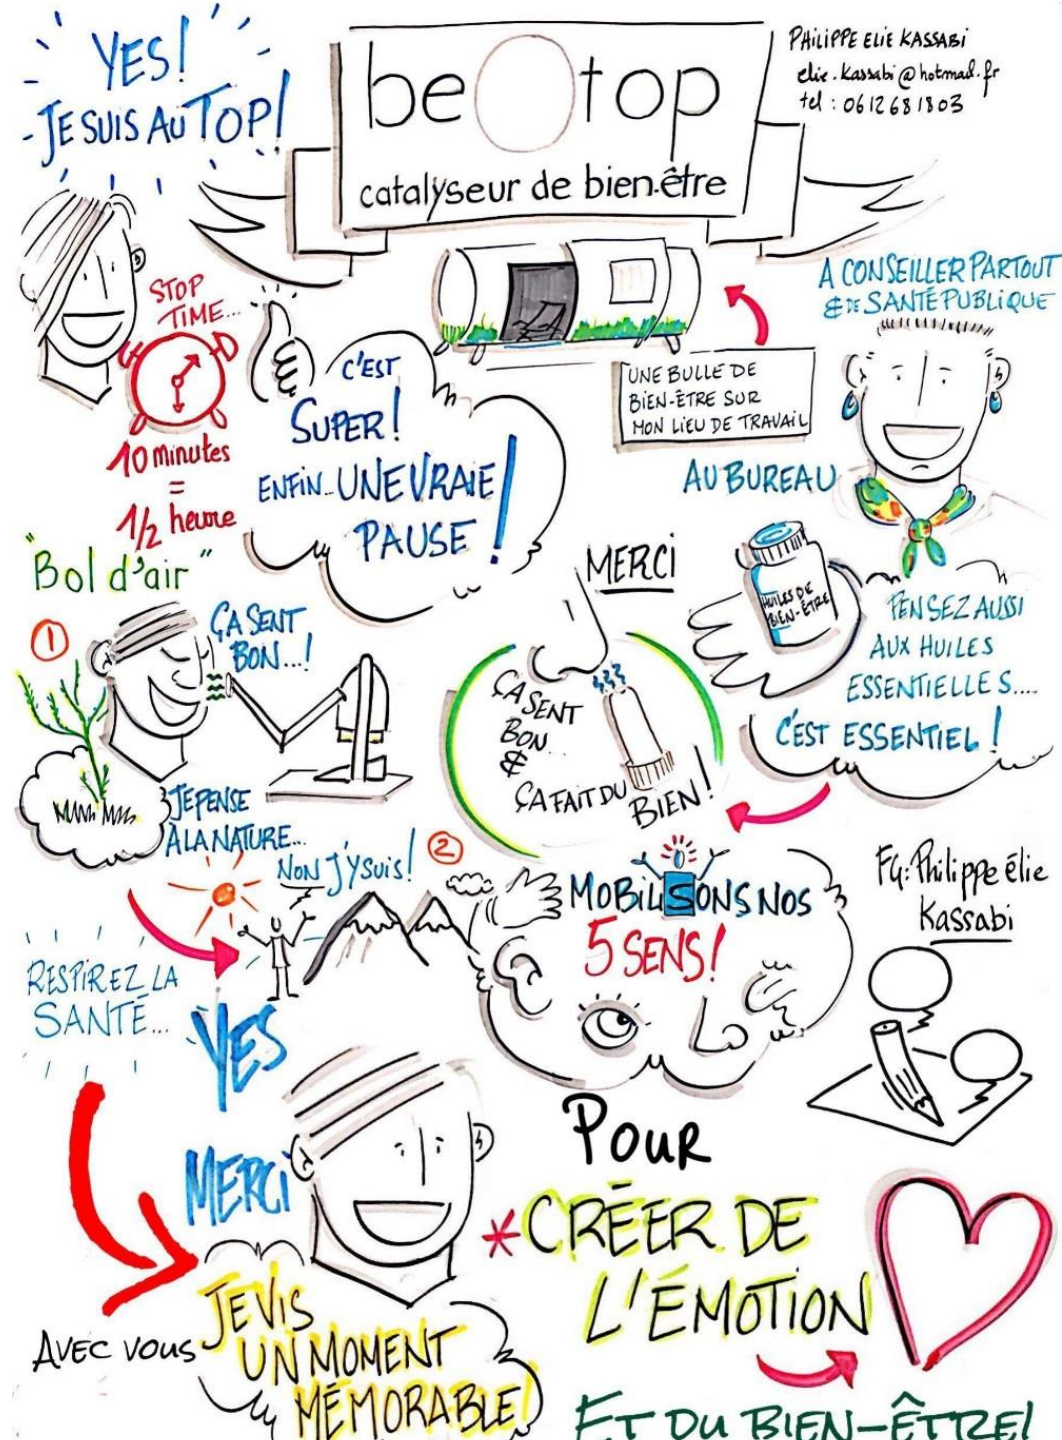 YES!
JE SUIS AU TOP!
beOtop
catalyseur de bien-être
PHILIPPE ELIE KASSABI
elie.kassabi@hotmail.fr
tel : 0612681803
STOP
TIME...
10 minutes
=
1/2 heure
C'EST
SUPER!
ENFIN... UNE VRAIE
PAUSE!
UNE BULLE DE
BIEN-ÊTRE SUR
MON LIEU DE TRAVAIL
A CONSEILLER PARTOUT
& DE SANTÉ PUBLIQUE
AU BUREAU
"Bol d'air"
1
ÇA SENT
BON...!
JE PENSE
À LA NATURE...
MERCI
ÇA SENT
BON...
&
ÇA FAIT DU
BIEN!
HUILES DE
BIEN-ÊTRE
PENSEZ AUSSI
AUX HUILES
ESSENTIELLES....
C'EST ESSENTIEL!
NON J'Y SUIS!
2
MOBILISONS NOS
5 SENS!
FG: Philippe élie
Kassabi
RESPIREZ LA
SANTÉ...
YES
MERCI
AVEC VOUS
JE VIS
UN MOMENT
MÉMORABLE!
POUR
*CRÉER DE
L'ÉMOTION
ET DU BIEN-ÊTRE!